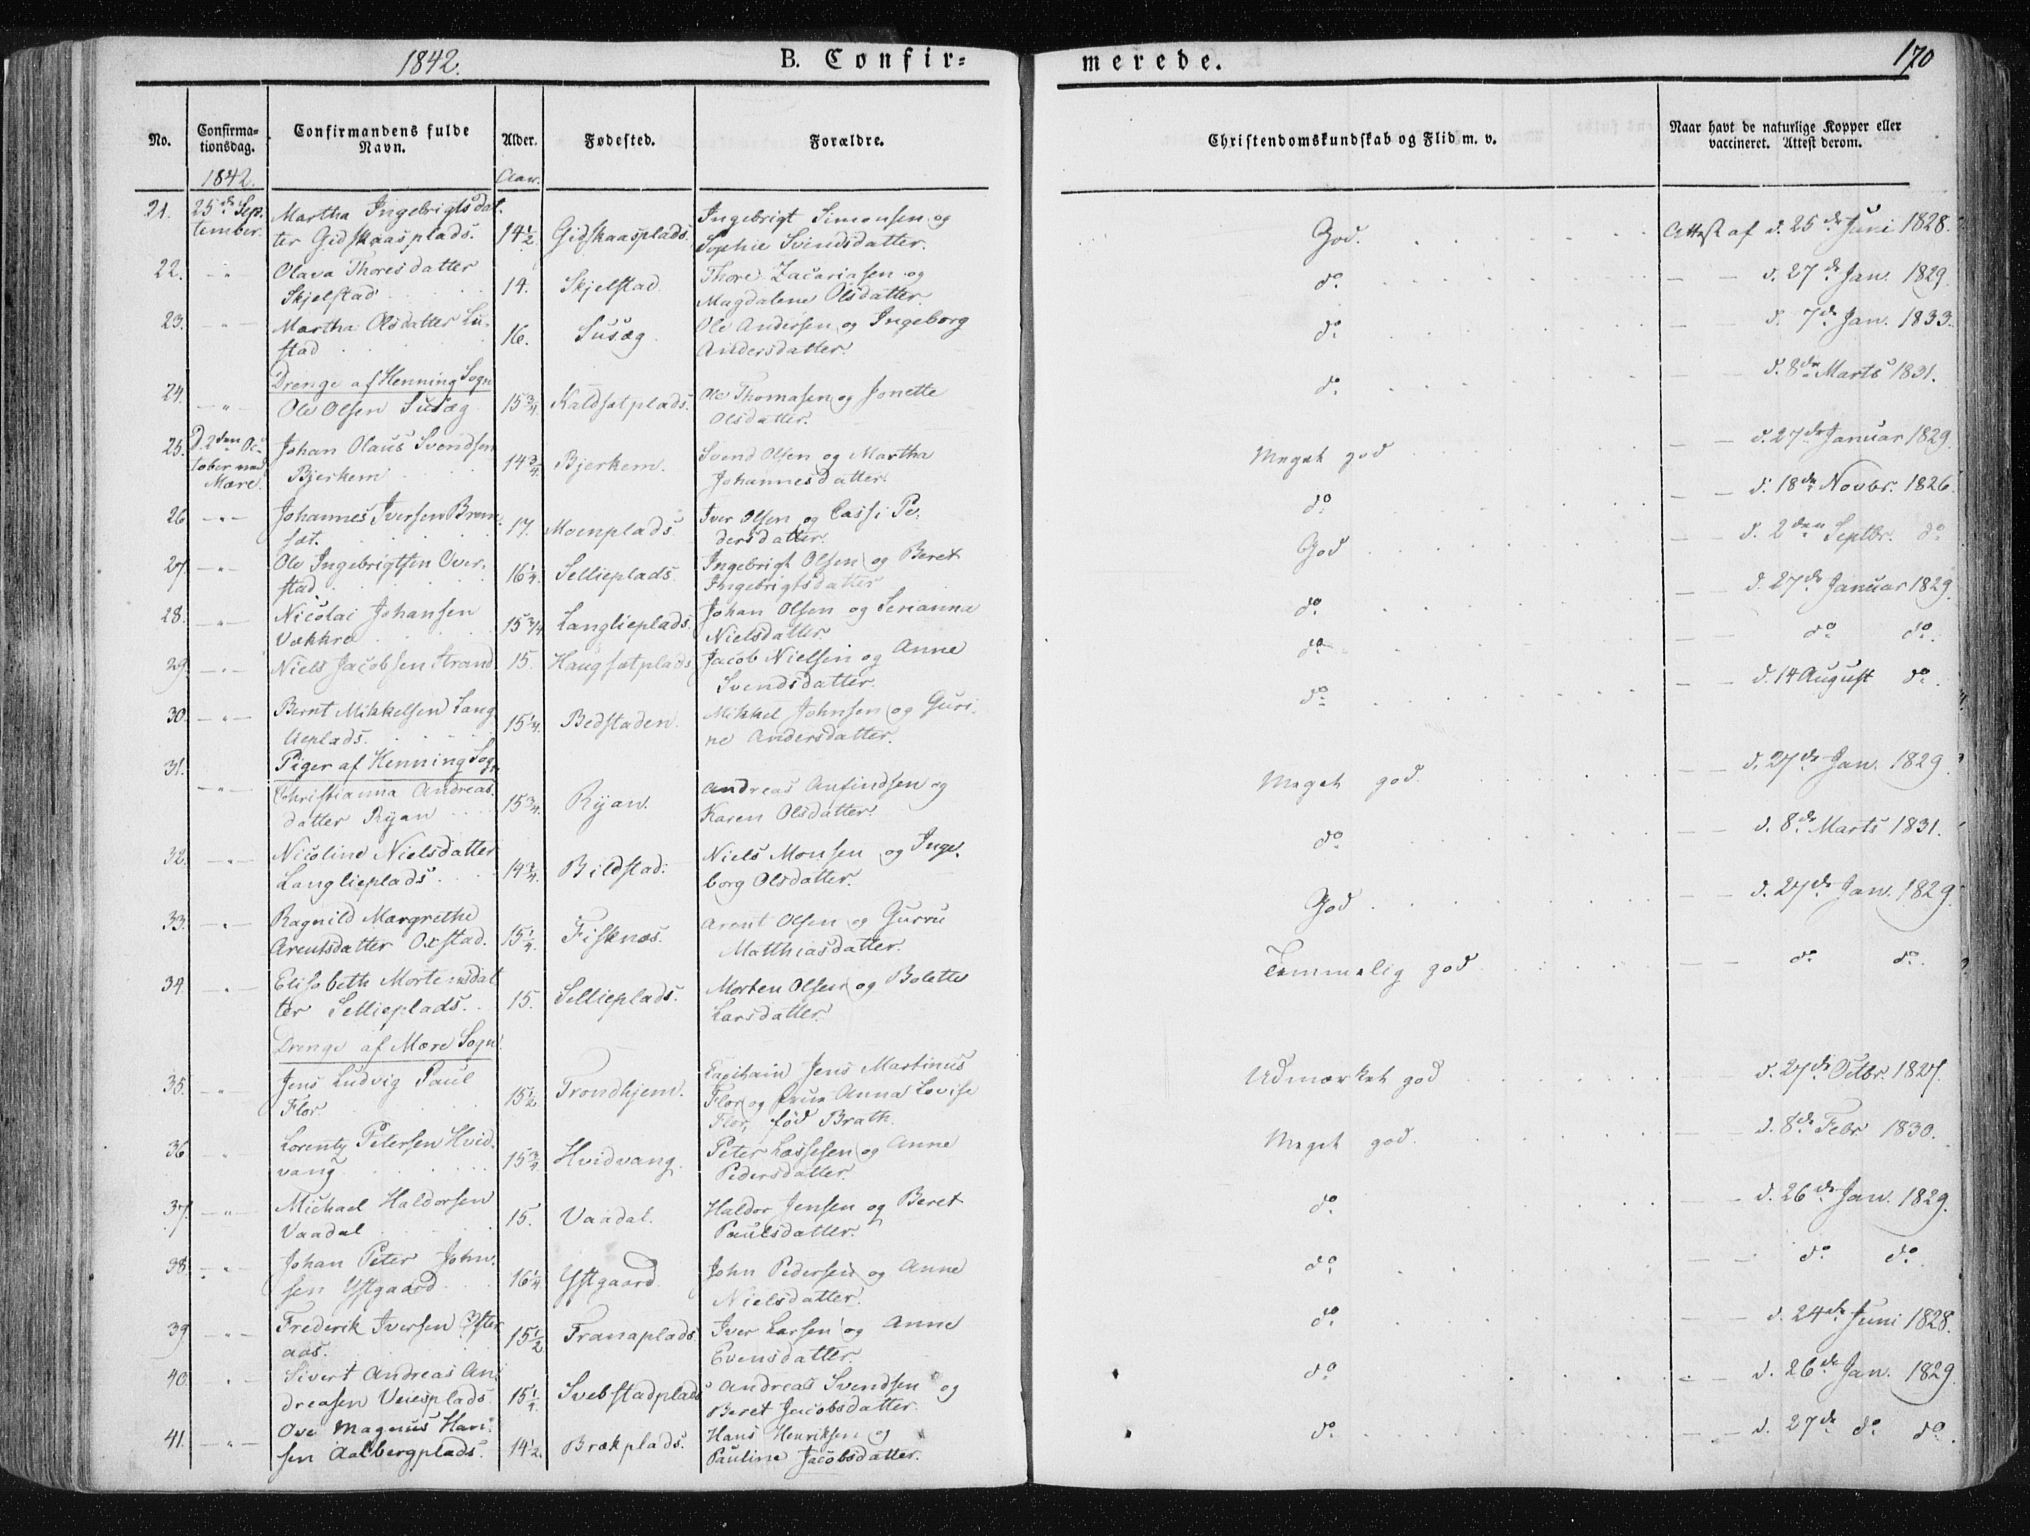 1842. B. Confir= merede. 170
No. Confirma-tionsdag. Confirmandens fulde Navn. Alder. Fødested. Forældre. Christendomskundskab og Flid m. v. Naar havt de naturlige Kopper eller vaccineret. Attest derom.
1842. Aar.
21. 25de Sep- Martha Ingebrigtsdat- Ingebrigt Simonsen og
tember. ter Gidskaasplads. 14½ Gidskaasplads. Sophie Svendsdatter. God. Attest af d. 25de Juni 1828.
22. -"- Olava Thoresdatter Thore Zacariasen og
Skjelstad 14. Skjelstad. Magdalene Olsdatter. do d. 27de Jan. 1829.
23. -"- Martha Olsdatter Lu- Ole Andersen og Ingeborg
stad 16. Susæg. Andersdatter. do d. 7de Jan. 1833.
Drenge af Henning Sogn
24. -"- Ole Olsen Susæg 15¾ Kaldsætplads. Ole Thomasen og Jonette
Olsdatter. do d. 8de Marts 1831.
25. D. 2den Oc- Johan Olaus Svendsen Svend Olsen og Martha
tober ved Mære. Bjerkem 14¾ Bjerkem. Johannesdatter. Meget god d. 27de Januar 1829.
26 -"- Johannes Iversen Brem- Iver Olsen og Cassi Pe-
sæt. 17. Moenplads. dersdatter. do d. 18de Novbr. 1826.
27. -"- Ole Ingebrigtsen Over- Ingebrigt Olsen og Beret
stad. 16¼. Sellieplads. Ingebrigtsdatter God d. 2den Septbr. do
28. -"- Nicolai Johansen Johan Olsen og Serianna
Vækkre 15¾ Langlieplads. Nielsdatter do d. 27de Januar 1829.
29. -"- Niels Jacobsen Strand 15. Haugsætplads Jacob Nielsen og Anne
Svendsdatter. do do do.
30. -"- Bernt Mikkelsen Lang- Mikkel Johnsen og Guri-
lieplads. 15¼. Bedstaden. ne Andersdatter. do d. 14 August do.
Piger af Henning Sogn
31. -"- Christianna Andreas- Andreas Anfindsen og
datter Ryan 15¾. Ryan. Karen Olsdatter. Meget god. d. 27de Jan. 1829.
32. -"- Nicoline Nielsdatter Niels Monsen og Inge-
Langlieplads. 14¾. Bildstad. borg Olsdatter. do d. 8de Marts 1831.
33. -"- Ragnild Margrethe Arent Olsen og Gurru
Arentsdatter Oxstad. 15¼. Fisknæs. Matthiasdatter. God d. 27de Jan. 1829.
34 -"- Elisabeth Mortensdat- Morten Olsen og Bolette
ter Sellieplads. 15. Sellieplads. Larsdatter. Temmelig god do do.
Drenge af Mære Sogn
35. " Jens Ludvig Paul Capitain Jens Martinus
Flor 15½. Trondhjem. Flor og Frue Anna Lovise
Flor, fød Brath. Udmærket god d. 27de Octbr. 1827.
36 " Lorenty Petersen Hvid- Peter Lassesen og Anne
vang 15¾ Hvidvang. Pedersdatter. Meget god. d. 8de Febr 1830.
37. -"- Michael Haldorsen Haldor Jensen og Beret
Vaadal 15. Vaadal. Paulsdatter. do d. 26de Jan. 1829.
38. -"- Johan Peter John- John Pedersen og Anne
sen Ystgaard. 16¼. Ystgaard. Nielsdatter. do do do.
39 -"- Frederik Iversen Øster- Iver Larsen og Anne
aas. 15½ Tranaplads. Evensdatter. do d. 24de Juni 1828.
40 " Sivert Andreas An- Andreas Svendsen og
dreasen Veiesplads 15¼. Svebstadplads Beret Jacobsdatter. do d. 26de Jan. 1829.
41. -"- Ove Magnus Han- Hans Henriksen og
sen Aalbergplads. 14½. Brækplads. Pauline Jacobsdatter. do d. 27de do do.